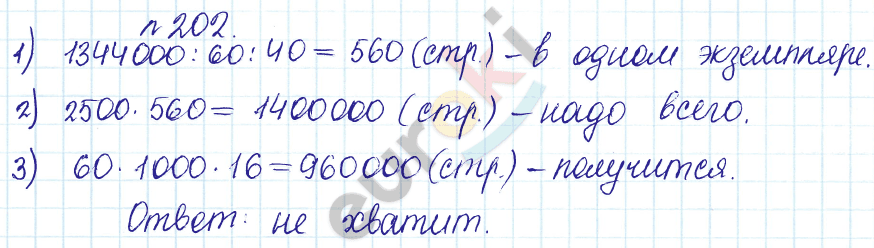 № 202.
1) 1344000 : 60 : 40 = 560 (стр.) – в одном экземпляре.
2) 2500 · 560 = 1400000 (стр.) – надо всего.
3) 60 · 1000 · 16 = 960000 (стр.) – получится.
Ответ: не хватит.
euroki